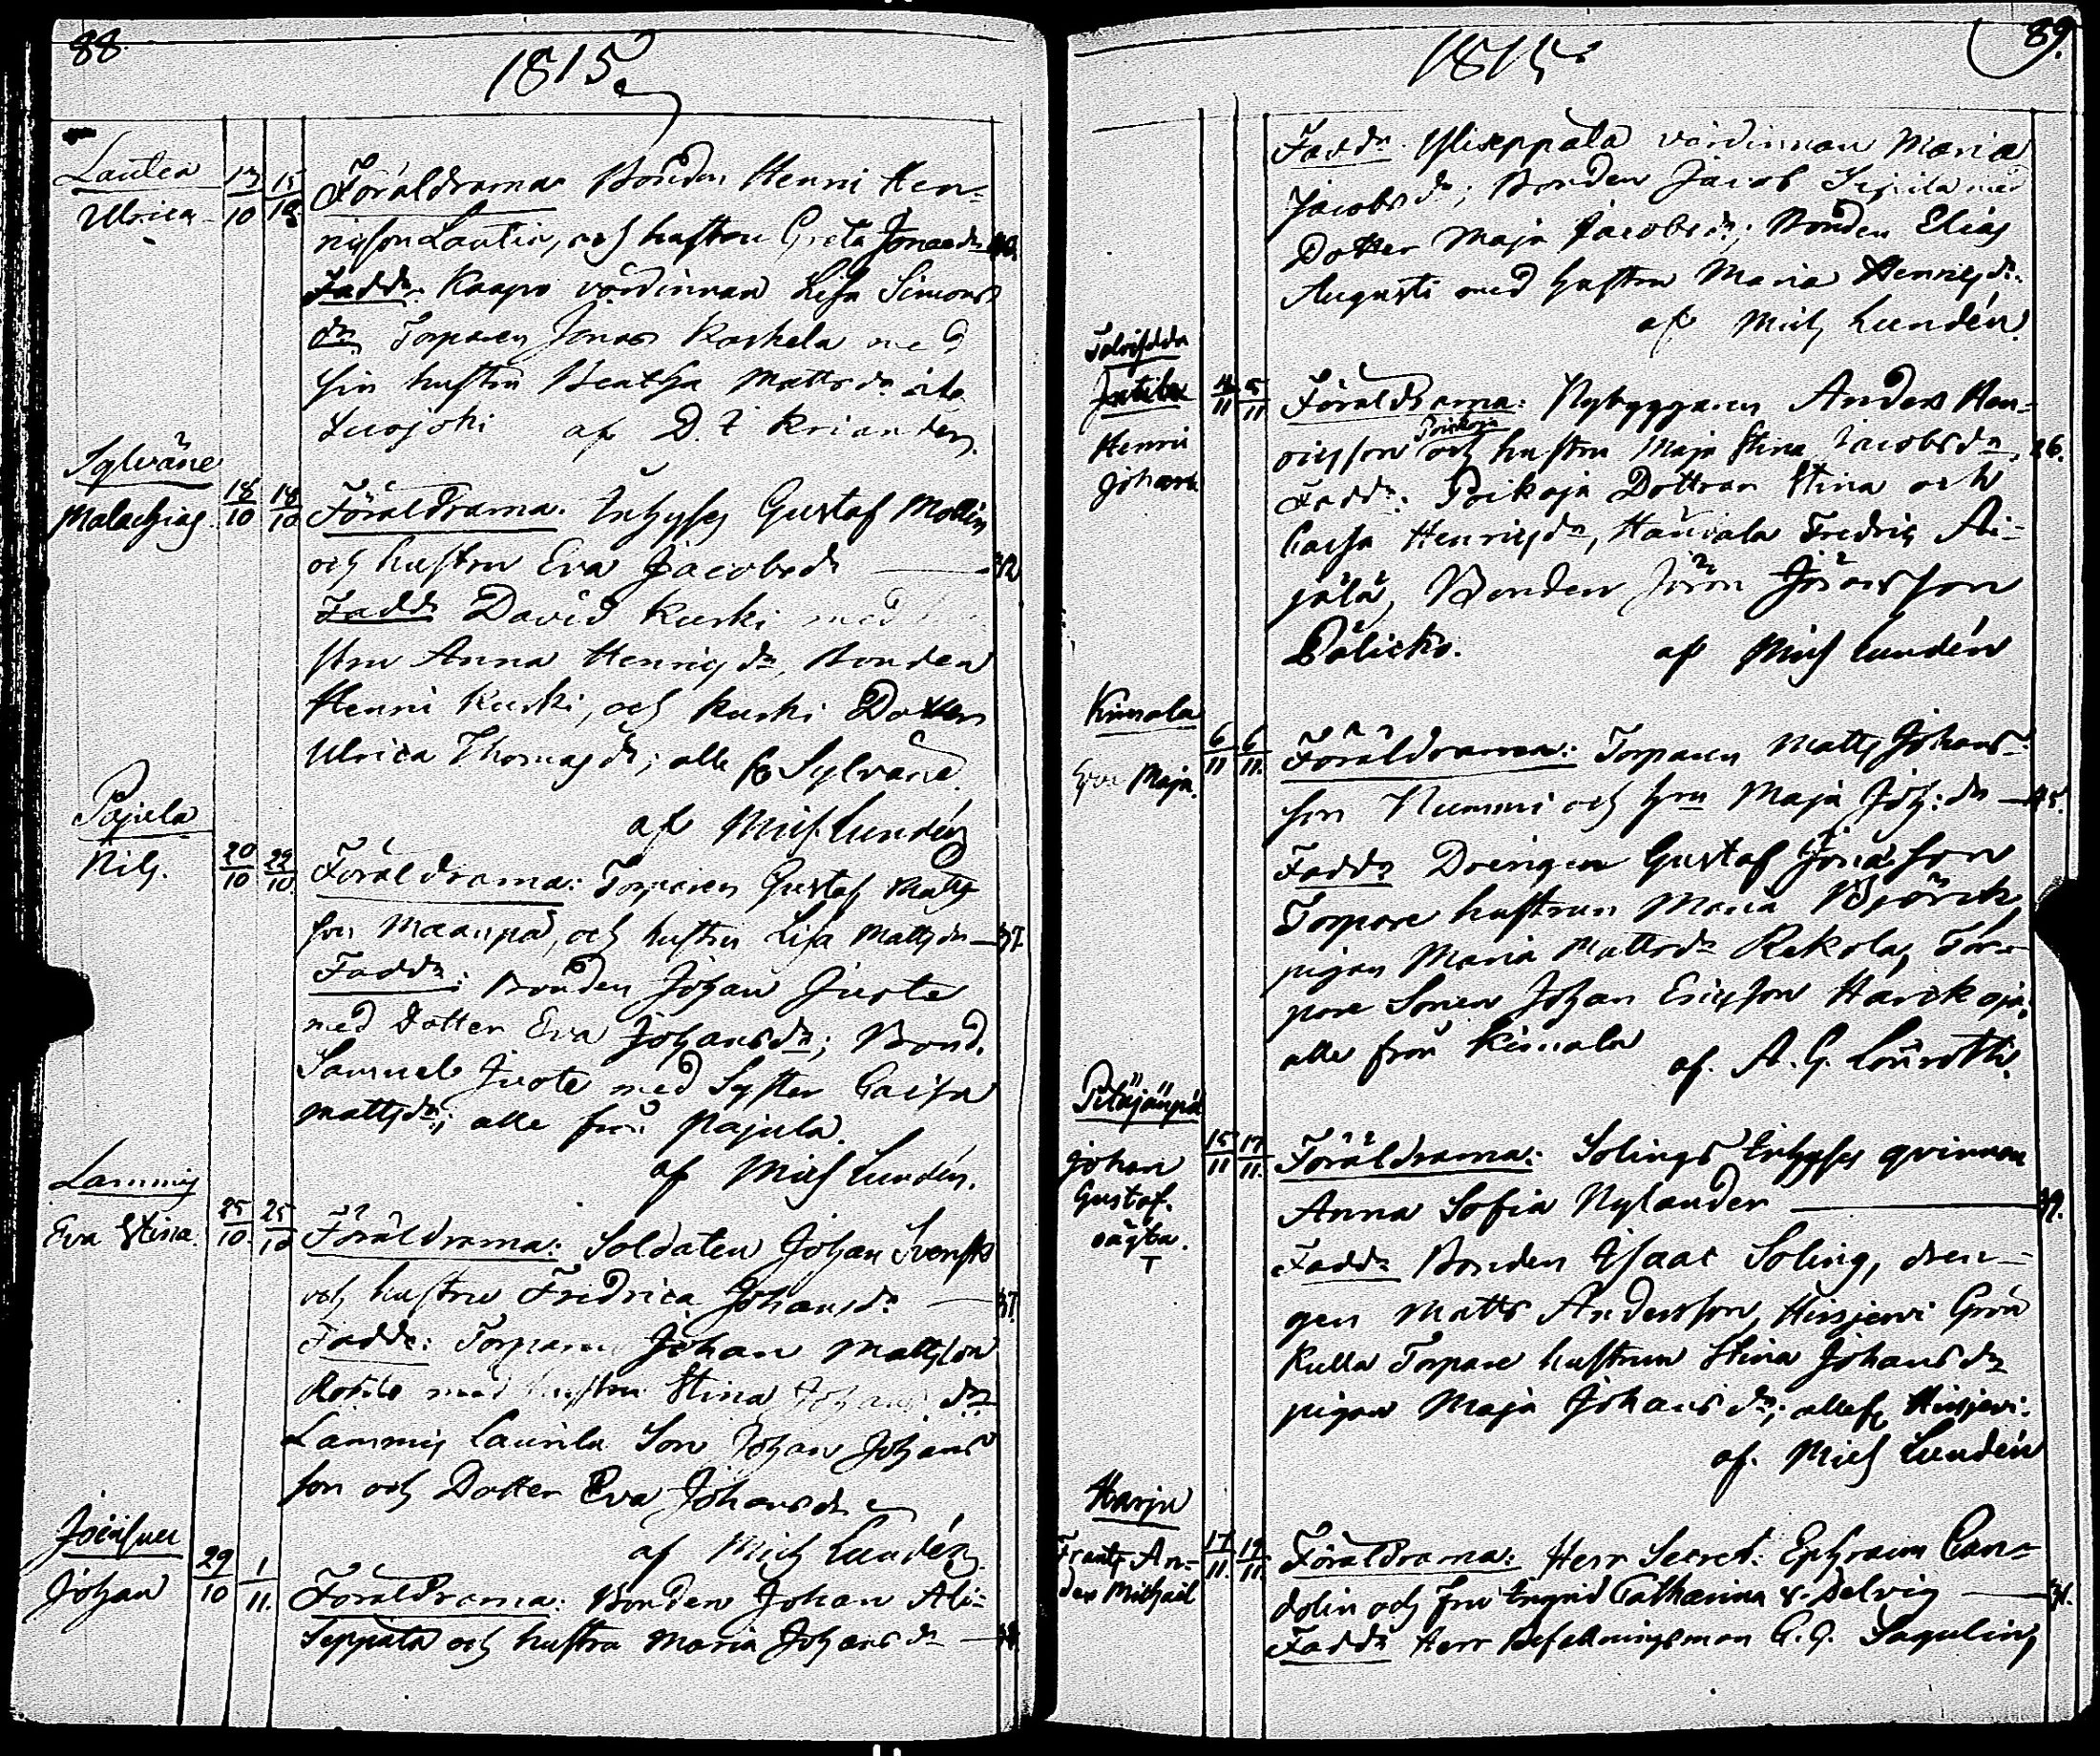 88.
1815
Lautea
Ulrica
13/10 15/10
Föräldrarna Bonden Henric Hen-
ricsson Lautia, och hustru Greta Jonaed:r 40.
Fadd:r Kaapo värdinnan Lisa Simons
d:r, Torparen Jonas Koskela med
sin hustru Beatha Mattsd:r
Suojoki af D. Z Kriander.
Sylväne
Malachias.
18/10 18/10
Föräldrarna. Inhyses Gustaf Mollin
och hustru Eva Jacobsd:r — 32
Fadd:r David Kuski med
stru Anna Henricsd:r, Bonden
Henric Kuski, och Kuski Dotter
Ulrica Thomasd:r; alle fr Sylväne
af Mich Lundén
Pajula
Nils.
20/10 22/10.
Föräldrarna: Torparen Gustaf Matts
son Maanpä, och hustru Lisa Mattsdr — 37.
Fadd:r: Bonden Johan Juote
med Dotter Eva Johansd:r; Bond.
Samuel Juote med Syster Caisa
Mattsd:r; alle från Pajula.
af Mich Lundén.
Lammis
Eva Stina.
25/10. 25/10
Föräldrarna: Soldaten Johan Svensk
och hustru Fredrica Johansd:r — 37.
Fadd:r: Torparen Johan Mattsson
med hustru Stina Johansd:r
Lammis Laurila Son Johan Johans
son och Dotter Eva Johansd:r
af Mich Lundén.
Johan
29/10 1/11.
Föräldrarna: Bonden Johan Ali-
Seppälä och hustru Maria Johansd:r —
89.
1815.
Fadd:r. Yliseppälä värdinnan Maria
Jacobsd:r; Bonden Jacob Seppilä med
Dotter Maja Jacobsd:r; Bonden Elias
Augusti med hustru Maria Henricsd:r.
af Mich Lundén
Jutila
Henric
Johan
4/11 5/11
Föräldrarna: Nybyggaren Anders Hen-
Poikoja
ricsson och hustru Maja Stina Jacobsd:r, 26.
Fadd:r: Poikoja Döttran Stina och
Caisa Henricsd:r, Fredric Äi-
jälä, Bonden Jöran Jöransson
Pälicko. af Mich Lundén
Kimala
Eva Maja.
6/11 6/11.
Föräldrarna: Torparen Matts Johans-
son Nummi och hru Maja Joh:dr — 45.
Fadd:r Drengen Gustaf Jonasson
Torpare hustrun Maria Björck
pigan Maria Mattsd:r Rekola, Tor-
pare Sonen Johan Ericsson Härckoja.
alle från Kimala
af. A. G. Lönroth.
Pitäjänpä
Johan
Gustaf.
oägta.
T
15/11 17/11.
Föräldrarna: Solings Inhyses qvinnan
Anna Sofia Nylander — 39.
Fadd:r Bonden Isaac Soling, dren-
gen Matts Andersson, Hirsjervi Grön
Kulla Torpare hustrun Stina Johansd:r
pigan Maja Johansd:r; alle fr Hirsjervi.
af. Mich Lundén
Harju
Frants An-
ders Michael
17/11. 19/11.
Föräldrarna: Herr Secret: Ephraim Can-
dolin och Fru Ingrid Catharina v. Delvig — 31.
Fadd:r Herr Befallningsman C. G. Sagulin,